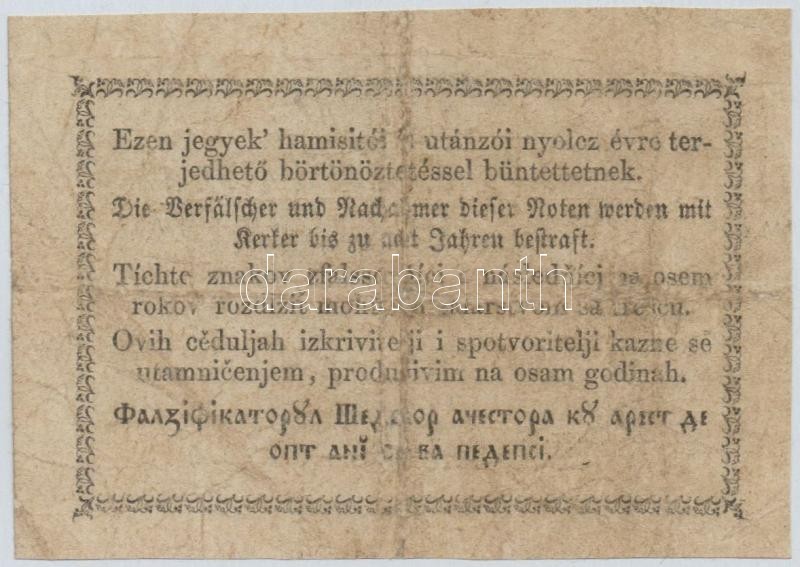 Ezen jegyek' hamisitói utánzói nyolcz évre ter-
jedhető börtönöztetéssel büntettetnek.
Die Verfälscher und Nachahmer dieser Noten werden mit
Kerker bis zu acht Jahren bestraft.
Tíchto znakov následňící na osem
rokov
Ovih cĕduljah izkrivitelji i spotvoritelji kazne se
utamničenjem, na osam godinah.
Фалзіфікаторꙋл ачестора кꙋ арест де
опт анĭ ва педепсі.
darabanth